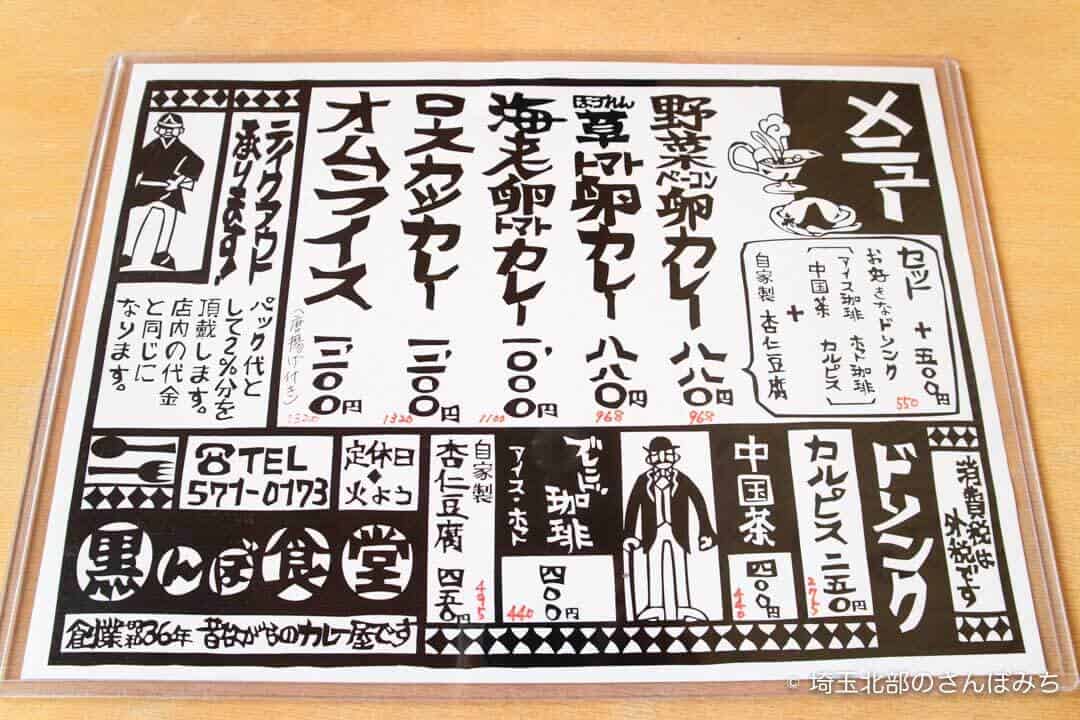 メニュー
セット +五〇〇円
550
お好きなドリンク
アイス珈琲 ホット珈琲
中国茶 カルピス
+
自家製 杏仁豆腐
野菜ベーコン卵カレー 八八〇円
968
ほうれん草トマト卵カレー 八八〇円
968
海老卵トマトカレー 一、〇〇〇円
1100
ロースカツカレー 一、二〇〇円
1320
オムライス 一、二〇〇円
(唐揚げ付き)
1320
テイクアウト
承ります!
パック代と
して2%分を
頂戴します。
店内の代金
と同じに
なります。
消費税は
外税です
ドリンク
カルピス 二五〇円
275
中国茶 四〇〇円
440
珈琲
アイス・ホット
四〇〇円
440
自家製
杏仁豆腐 四五〇円
495
定休日
火よう
☎TEL
571-0173
黒んぼ食堂
創業昭和36年 昔ながらのカレー屋です
© 埼玉北部のさんぽみち